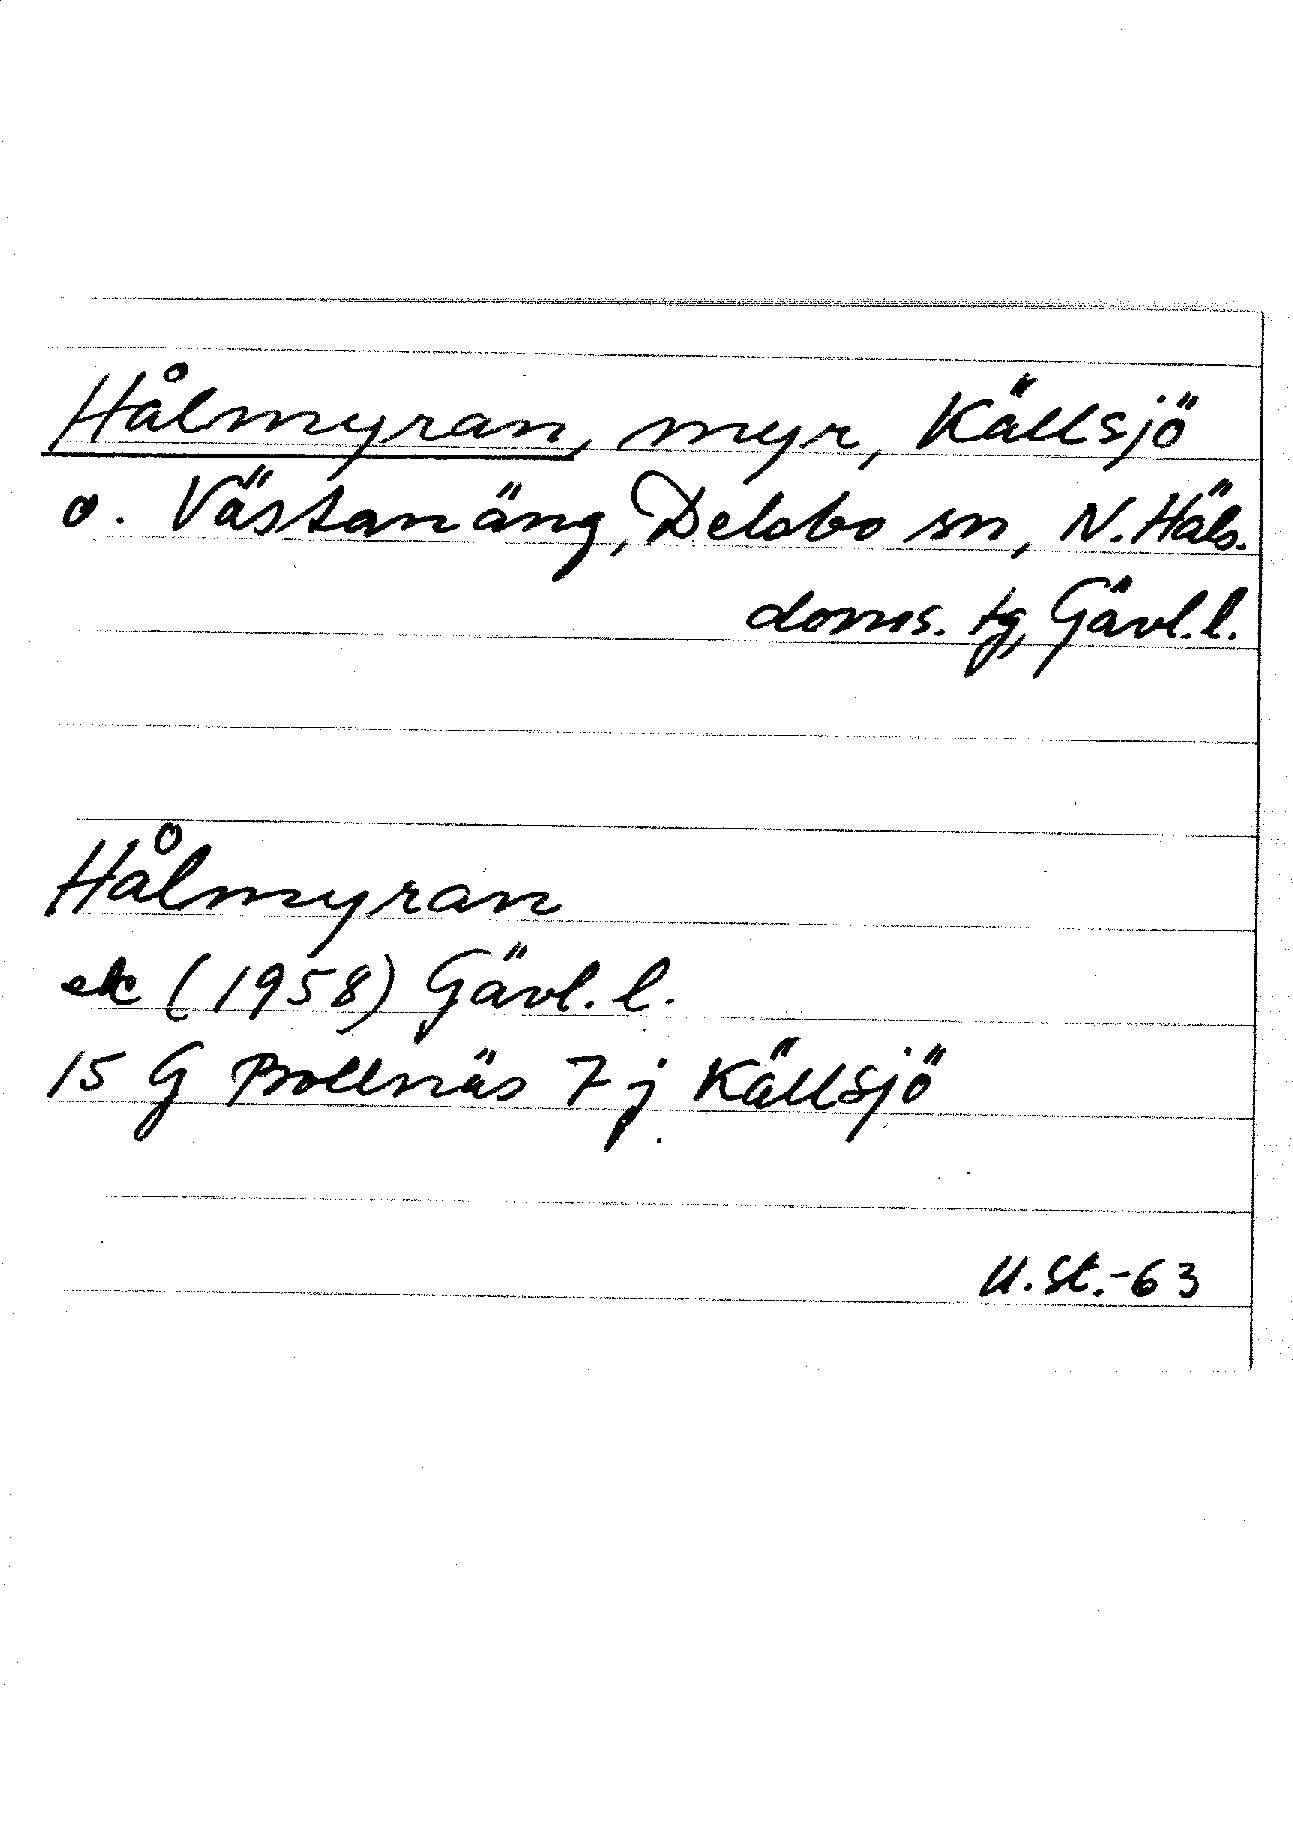 Hålmyran, myr, Källsjö
o. Västanäng, Delsbo sn, N. Häls.
doms. tg, Gävl. l.
Hålmyran
ek (1958) Gävl. l.
15 G Bollnäs 7 j Källsjö
U. St. -63